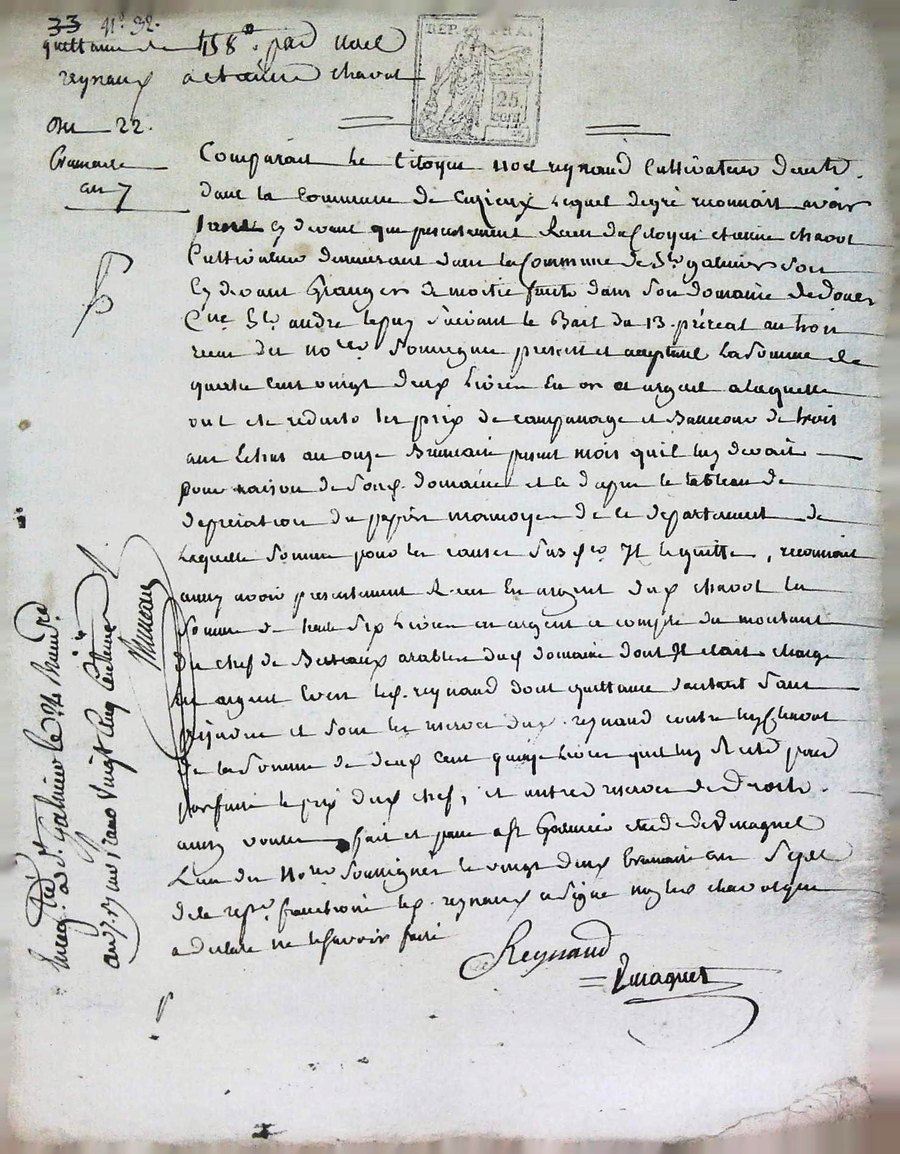 33 N° 32.
quittance de 458# par noel
reynaud a etienne chavot
Du 22.
Brumaire
an 7
REP. FRA.
25
cent.
Comparait le Citoyen noel reynaud Cultivateur demt
dans la Commune de Cuzieux lequel de gré reconnait avoir
cy devant que presentement Recu du Citoyen etienne chavot
Cultivateur demeurant dans la Commune de St galmier son
cy devant Granger de moitié fruits dans son domaine de
Cne St andre le puy suivant le Bail du 13 préréal an trois
recu du nore soussigné present et acceptant la somme de
quatre cent vingt deux livres en or et argent a laquelle
ont ete reduits les prix de et de trois
ans echus au onze Brumaire present mois quil luy devait
pour raison de domaine et ce d'apres le tableau de
depretiation du papier monnoyé de ce departement de
laquelle somme pour les causes il le quitte, reconnait
aussy avoir presentement Recu en argent dud chavot la
somme de trente six livres en argent a compte du montant
du chef de Bestiaux arables dud domaine dont il etait chargé
en argent led. reynaud dont quittance d'autant sans
prejudice et sous les reserves dud. reynaud contre led chavot
de la somme de deux cent quinze livres quil luy Reste pour
parfaire le prix dud chef, et autres reserves de Droits.
ainsy voulu fait et passé a St Galmier etude de Dmagnet
L'un des Nores soussignés le vingt deux brumaire an Sept
de la repe. francaise led. reynaud a signé non led chavot qui
a declaré ne le savoir faire
Reynaud
Enregé a St Galmier le 24 brumre
an 7. recu vingt cinq centimes